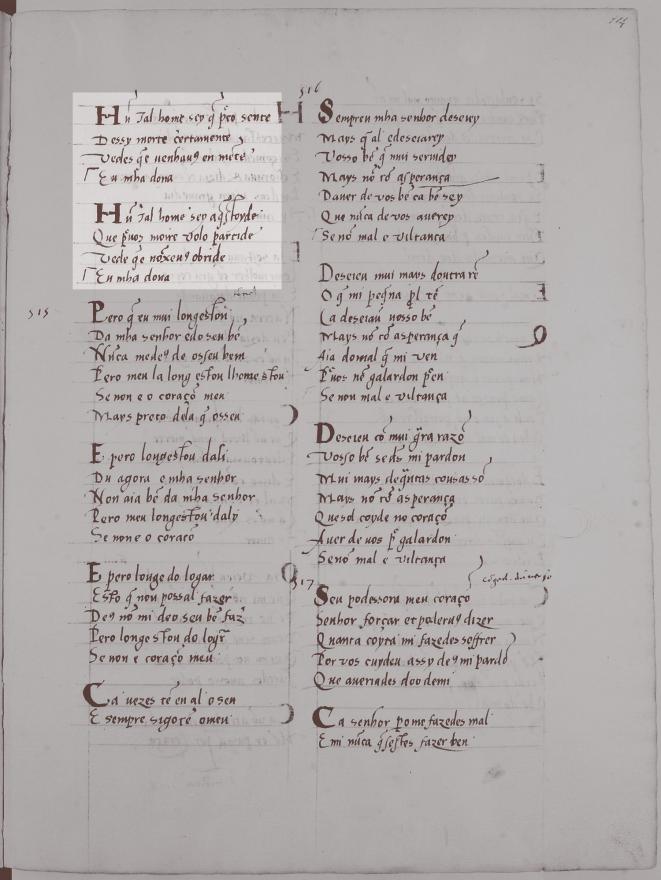 114
Hũ Tal home sey q̃ p̃to sente
Dessy morte certamente
Vedes q̃ venhaꝰ en mẽte
Eu mha dona
Hũ Tal home sey aq̃storde
Que p̃uos moire volo partide
Vede q̃ nõxeuꝰ obride
Eu mha dona
515
Pero q̃ eu mui longestou
Da mha senhor edo seu bẽ
Nũca medeꝰ de osseu bem
Pero meu la long estou lhomestou
Se non e o coraçõ meu
Mays preto dela q̃ osseu
E pero longestou dali
Du agora e mha senhor
Non aia bẽ da mha senhor
Pero meu longestou daly
Se none o coraco
E pero louge do logar
Esto q̃ nou possal fazer
Deꝰ nõ mi deo seu bẽ faz
Pero longestou do loyr
Se non e coraçõ meu
Ca vezes tẽ en al o sen
E sempre sigo tẽ o meu
516
Sempreu mha senhor deseiey
Mays q̃ al edeseiarey
Vosso bẽ q̃ mui seruidey
Mays nõ cõ asperança
Dauer de vos bẽ ca bẽ sey
Que nũca de vos auerey
Senõ mal e viltança
Deseieu mui mays doutra rẽ
O q̃ mi peq̃na p̃l tẽ
Ca deseiau vosso bẽ
Mays nõ cõ asperança q̃
Aia domal q̃ mi ven
P̃uos nẽ galardon p̃en
Se nou mal e viltança
Deseieu cõ mui g̃ra razõ
Vosso bẽ sedꝰ mi pardon
Mui mays deq̃ntas cousas sõ
Mays nõ cõ asperança
Quesol coyde no coraçõ
Auer de vos p̃ galardon
Senõ mal e viltança
517
Seu podessora meu coraço
Senhor forçar et poleruꝰ dizer
Quanta coyta mi fazedes soffrer
Por vos cuydeu assy deꝰ mi pardõ
Que averiades doo demi
Ca senhor pome fazedes mal
E mi nũca q̃sestes fazer ben